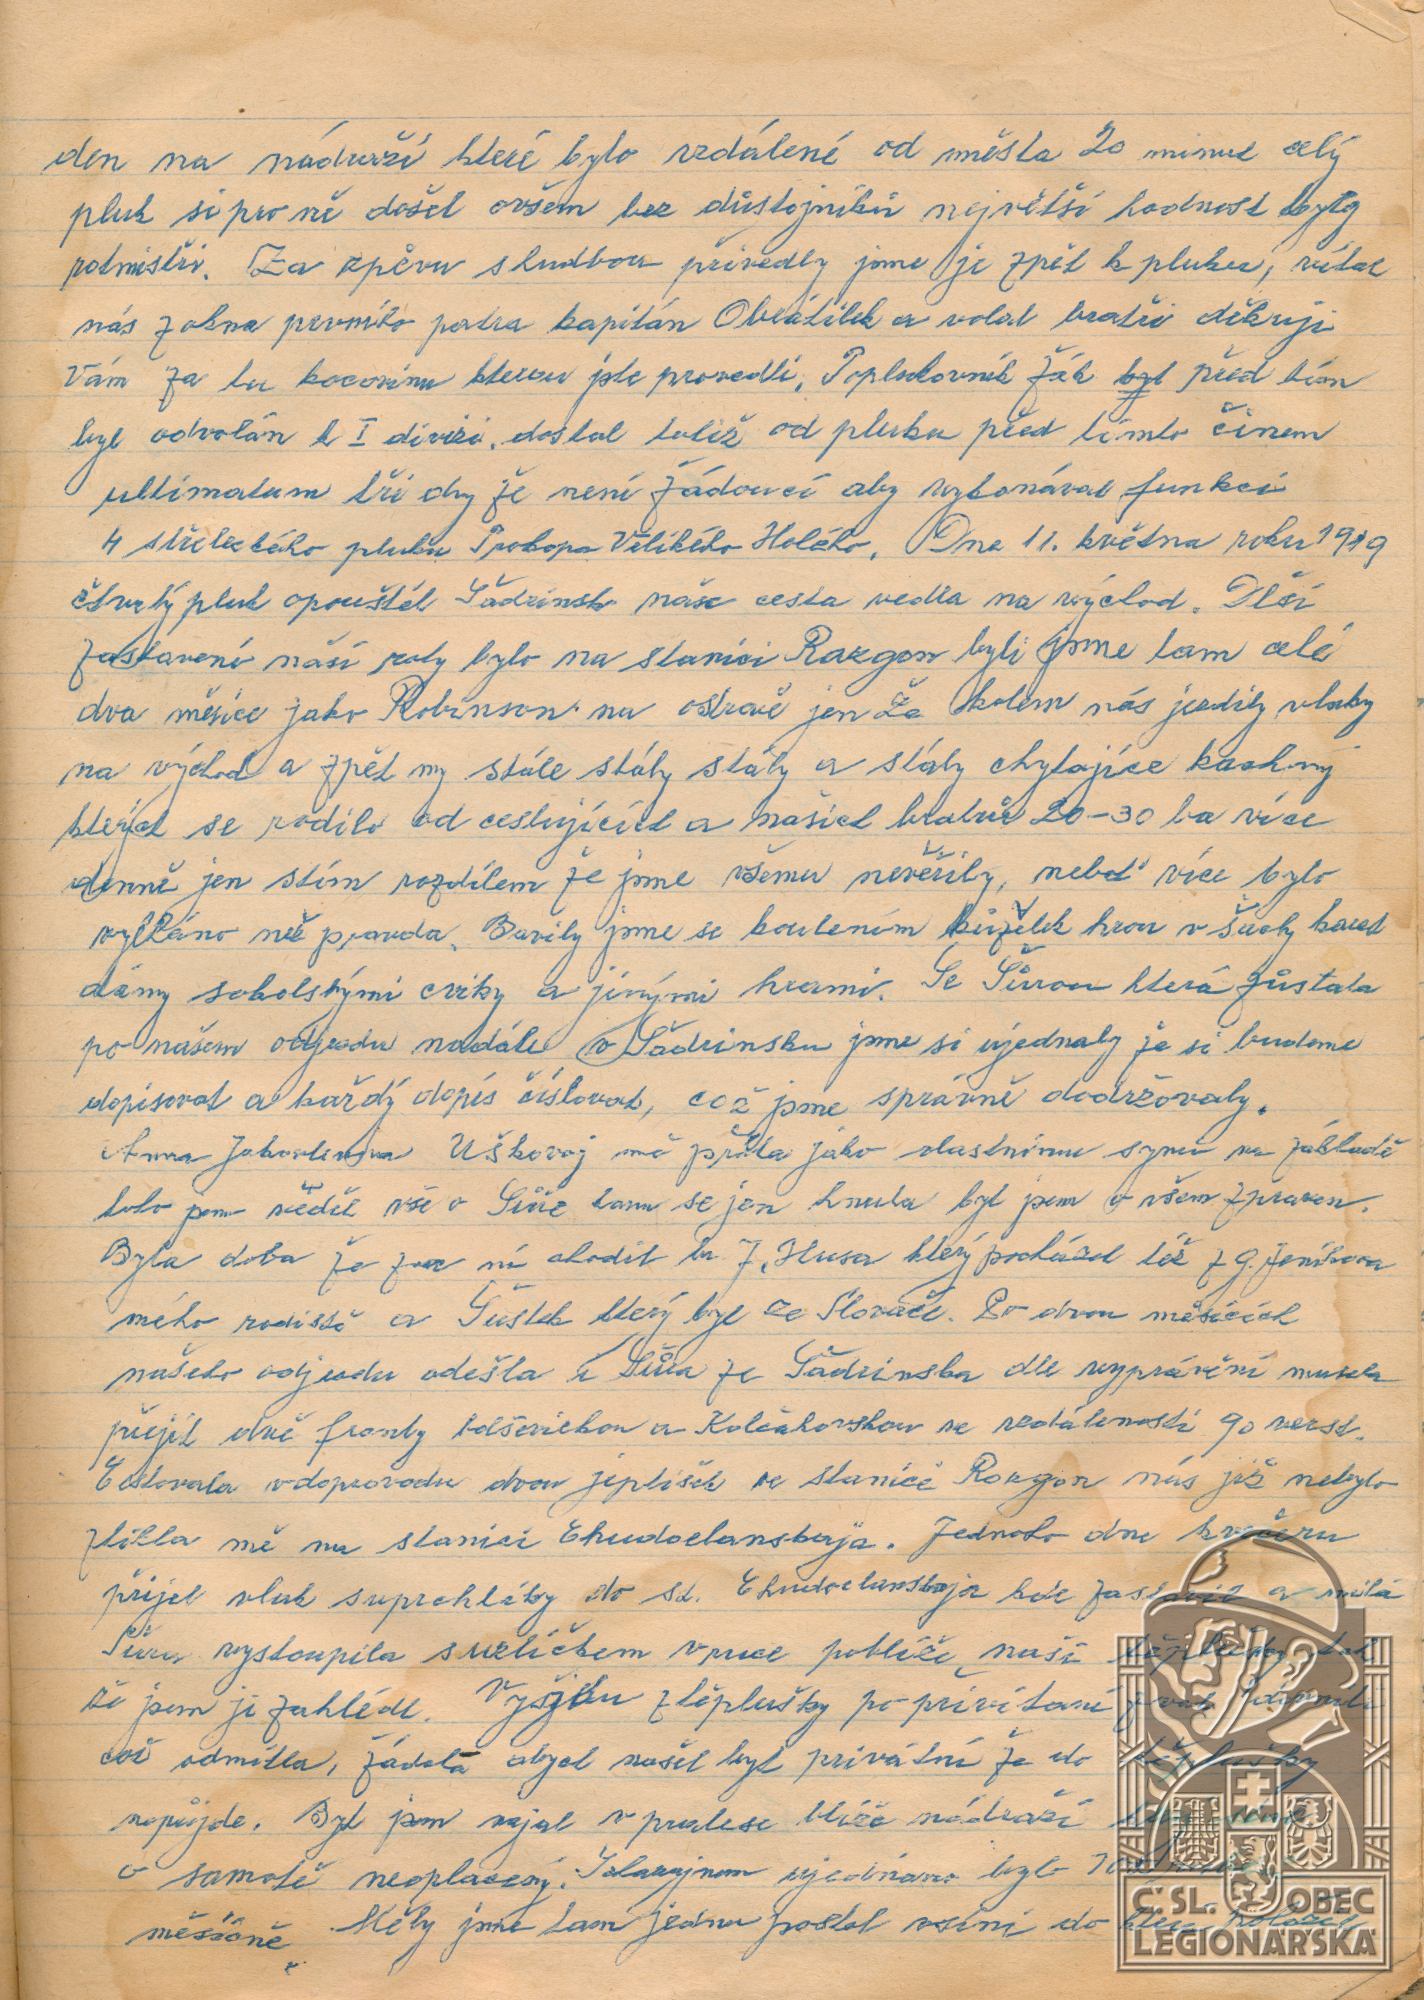 den na nádraží které bylo vzdálené od města 20 minut celý
pluk si pro ně došel ovšem bez důstojníků největší hodnost byly
rotmistři. Za zpěvu s hudbou přivedly jsme je zpět k pluku, vítal
nás z okna prvního patra kapitán Obrátilek a volal bratři děkuji
Vám za tu kocovinu kterou jste provedli. Poplukovník Žák byl před tím
byl odvolán k I divizi. dostal totiž od pluku před tímto činem
ultimatum tři dny že není žádoucí aby vykonával funkci
4 střeleckého pluku Prokopa Velikého Holého. Dne 11. května roku 1919
čtvrtý pluk opouštěl Šadrinsk naše cesta vedla na východ. Dlší
zastavení naší roty bylo na stanici Razgon byli jsme tam celé
dva měsíce jako Robinson na ostravě jen že kolem nás jezdily vlaky
na východ a zpět my stále stály stály a stály chytajíce kachny
kterých se rodilo od cestujících a našich bratrů 20-30 ba více
denně jen stím rozdílem že jsme všemu nevěřily, neboť více bylo
vylháno než pravda. Bavily jsme se koulením kuželek hrou v šachy karet
dámy sokolskými cviky a jinými hrami. Se Šurou která zůstala
po našem odjezdu nadále v Šadrinsku jsme si ujednaly že si budeme
dopisovat a každý dopis číslovat, což jsme správně dodržovaly.
Anna Jakovlevna Uškovoj mě přála jako vlastnímu synu na základě
toho jsem věděl vše o Šuře tam se jen hnula byl jsem o všem zpraven.
Byla doba že za ní chodil br J. Husa který pocházel též z G. Jeníkova
mého rodiště a Šustek který byl ze Slovače. Po dvou měsících
našeho odjezdu odešla i Šura ze Šadrinska dle vyprávění musela
přejít dvě fronty bolševickou a Kolčakovskou ve vzdálenosti 90 verst.
Cestovala vdoprovodu dvou jeptišek ve stanicě Razgon nás již nebylo
zlikla mě na stanici Chudoelanskaja. Jednoho dne kvečeru
přijel vlak suprchlíky do st. Chudoelanskaja kde zastavil a milá
Šura vystoupila suzlíčkem vruce poblíže naší těplušky tak
že jsem ji zahlédl. Vyšjdu ztěplušky po přivítaní zval
což odmítla, žádala abych našel byt privátní že do těplušky
nepůjde. Byl jsem najal v pralese blíže nádraží
v samotě neoplacený. Solarujnem ujednáno bylo
měsíčně. Měly jsme tam jednu postel vsíni do